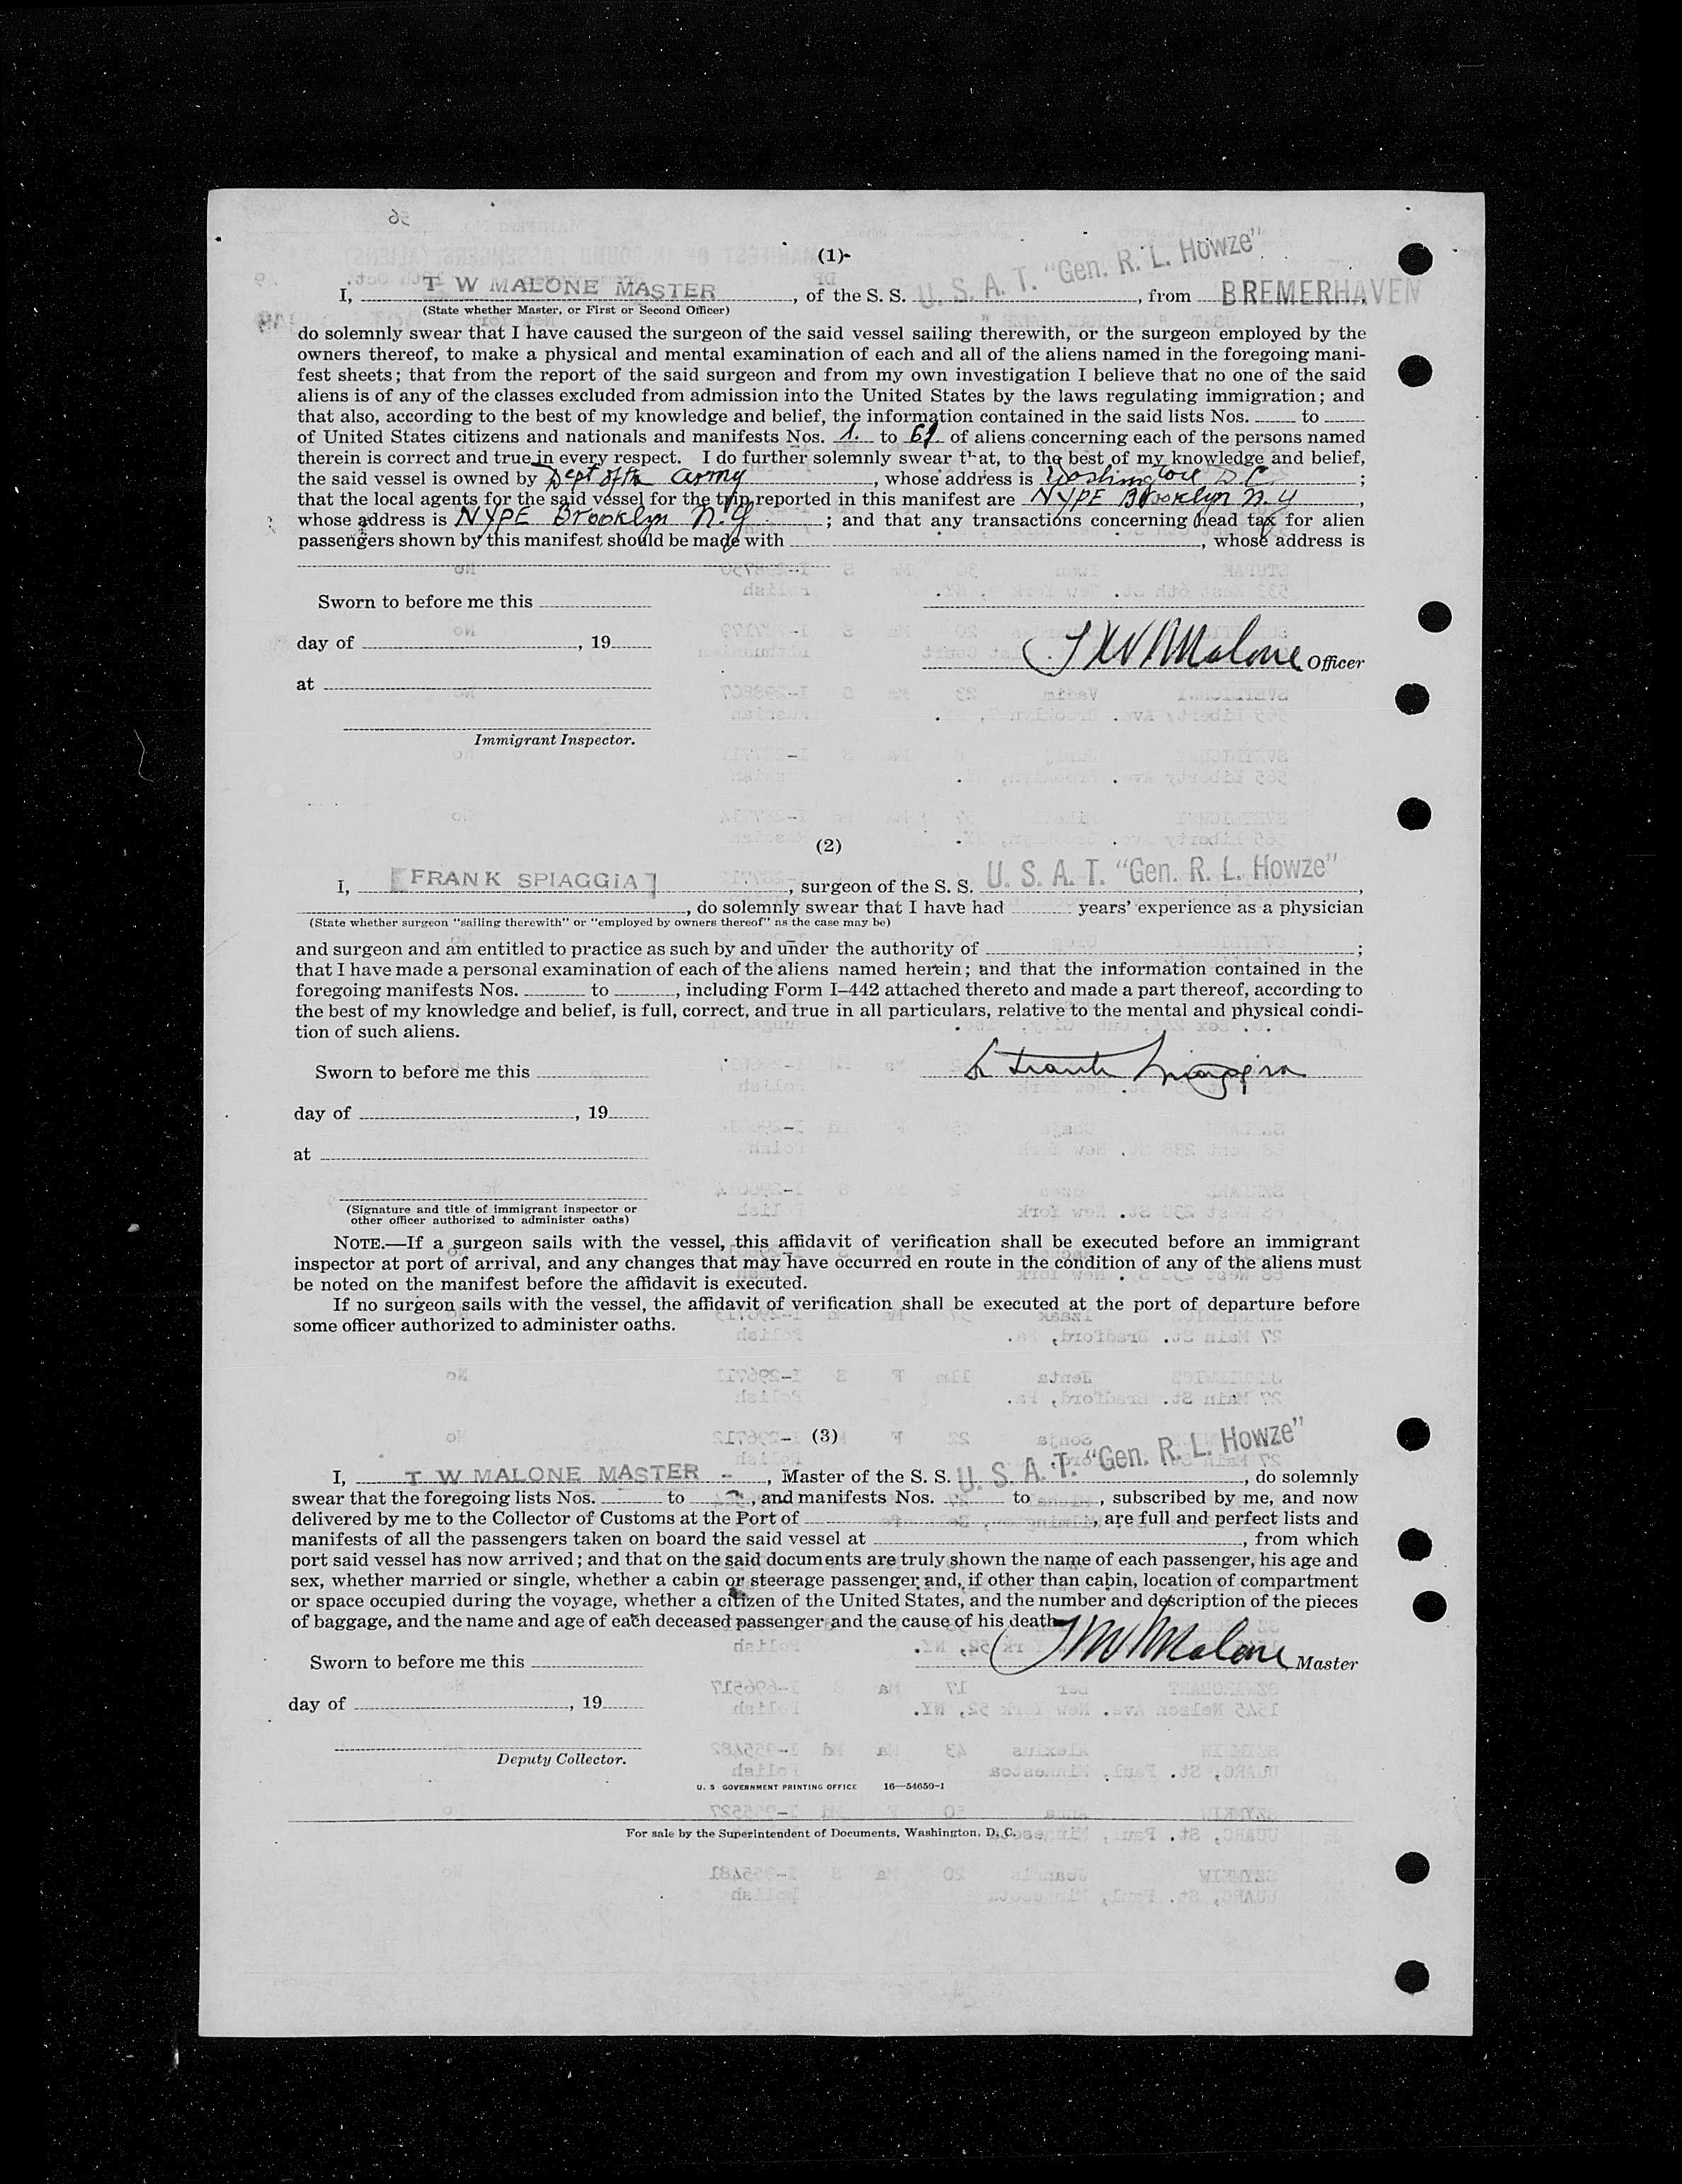 (1)
I, T W MALONE MASTER, of the S. S. U. S. A. T. "Gen. R. L. Howze", from BREMERHAVEN
(State whether Master, or First or Second Officer)
do solemnly swear that I have caused the surgeon of the said vessel sailing therewith, or the surgeon employed by the
owners thereof, to make a physical and mental examination of each and all of the aliens named in the foregoing mani-
fest sheets; that from the report of the said surgeon and from my own investigation I believe that no one of the said
aliens is of any of the classes excluded from admission into the United States by the laws regulating immigration; and
that also, according to the best of my knowledge and belief, the information contained in the said lists Nos. to
of United States citizens and nationals and manifests Nos. 1. to 61 of aliens concerning each of the persons named
therein is correct and true in every respect. I do further solemnly swear that, to the best of my knowledge and belief,
the said vessel is owned by Dept of the Army, whose address is Washington D C;
that the local agents for the said vessel for the trip reported in this manifest are NYPE Brooklyn N.Y,
whose address is NYPE Brooklyn N.Y; and that any transactions concerning head tax for alien
passengers shown by this manifest should be made with , whose address is
Sworn to before me this
day of , 19
T W Malone Officer
at
Immigrant Inspector.
(2)
I, [FRANK SPIAGGIA], surgeon of the S. S. U. S. A. T. "Gen. R. L. Howze",
, do solemnly swear that I have had years' experience as a physician
(State whether surgeon "sailing therewith" or "employed by owners thereof" as the case may be)
and surgeon and am entitled to practice as such by and under the authority of ;
that I have made a personal examination of each of the aliens named herein; and that the information contained in the
foregoing manifests Nos. to , including Form I-442 attached thereto and made a part thereof, according to
the best of my knowledge and belief, is full, correct, and true in all particulars, relative to the mental and physical condi-
tion of such aliens.
Sworn to before me this
Frank Spiaggia
day of , 19
at
(Signature and title of immigrant inspector or
other officer authorized to administer oaths)
NOTE.—If a surgeon sails with the vessel, this affidavit of verification shall be executed before an immigrant
inspector at port of arrival, and any changes that may have occurred en route in the condition of any of the aliens must
be noted on the manifest before the affidavit is executed.
If no surgeon sails with the vessel, the affidavit of verification shall be executed at the port of departure before
some officer authorized to administer oaths.
(3)
I, T W MALONE MASTER, Master of the S. S. U. S. A. T. "Gen. R. L. Howze", do solemnly
swear that the foregoing lists Nos. to , and manifests Nos. to , subscribed by me, and now
delivered by me to the Collector of Customs at the Port of , are full and perfect lists and
manifests of all the passengers taken on board the said vessel at , from which
port said vessel has now arrived; and that on the said documents are truly shown the name of each passenger, his age and
sex, whether married or single, whether a cabin or steerage passenger and, if other than cabin, location of compartment
or space occupied during the voyage, whether a citizen of the United States, and the number and description of the pieces
of baggage, and the name and age of each deceased passenger and the cause of his death.
T W Malone Master
Sworn to before me this
day of , 19
Deputy Collector.
U. S GOVERNMENT PRINTING OFFICE 16—54650-1
For sale by the Superintendent of Documents, Washington, D. C.